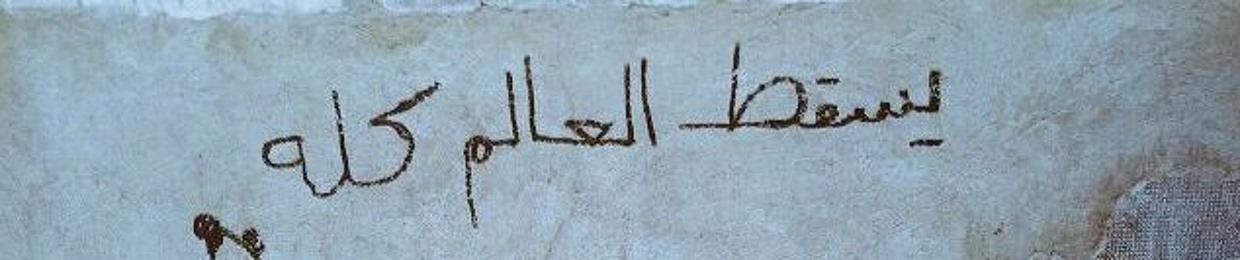 يسقط العالم كله